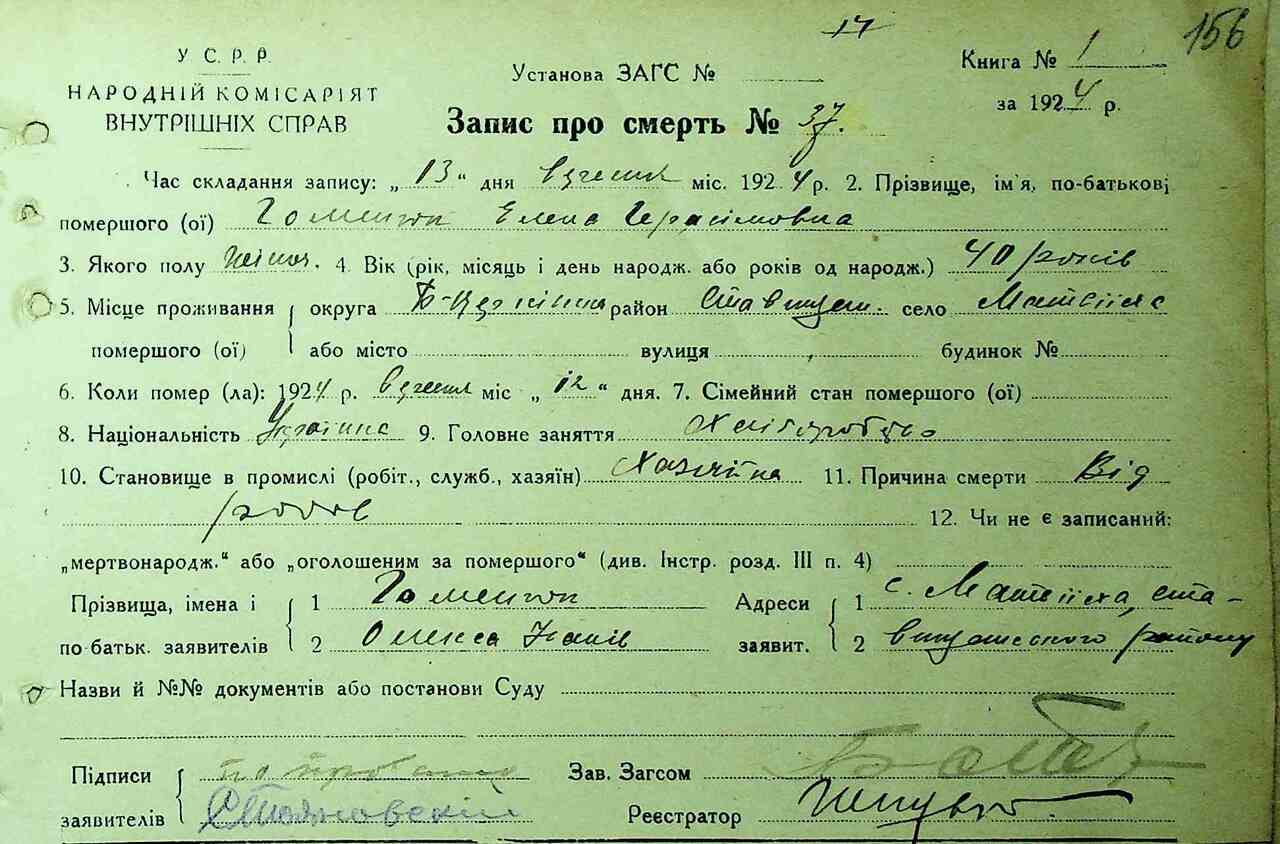 14
156
У С. Р. Р.
НАРОДНІЙ КОМІСАРІЯТ
ВНУТРІШНІХ СПРАВ
Установа ЗАГС №
Книга № 1
за 1924 р.
Запис про смерть № 37.
Час складання запису: „ 13 “ дня вересня міс. 1924 р. 2. Прізвище, ім'я, по-батькові
помершого (ої) Гоменюк Елена Герасімовна
3. Якого полу жіноч. 4. Вік (рік, місяць і день народж. або років од народж.) 40 років
5. Місце проживання округа Б-Церківщ район Ставищан. село Матвіїха
помершого (ої) або місто вулиця будинок №
6. Коли помер (ла): 1924 р. вересня міс „ 12 “ дня. 7. Сімейний стан помершого (ої)
8. Національність Українка 9. Головне заняття Хліборобство
10. Становище в промислі (робіт., служб., хазяїн) Хазяйка 11. Причина смерти Від
родов 12. Чи не є записаний:
„мертвонародж.“ або „оголошеним за помершого“ (див. Інстр. розд. III п. 4)
Прізвища, імена і 1 Гоменюк Адреси 1 с. Матвіїха, Ста-
по-батьк. заявителів 2 Олекса заявит. 2 вищанського району
Назви й №№ документів або постанови Суду
Підписи Зав. Загсом
заявителів Стояновский Реєстратор